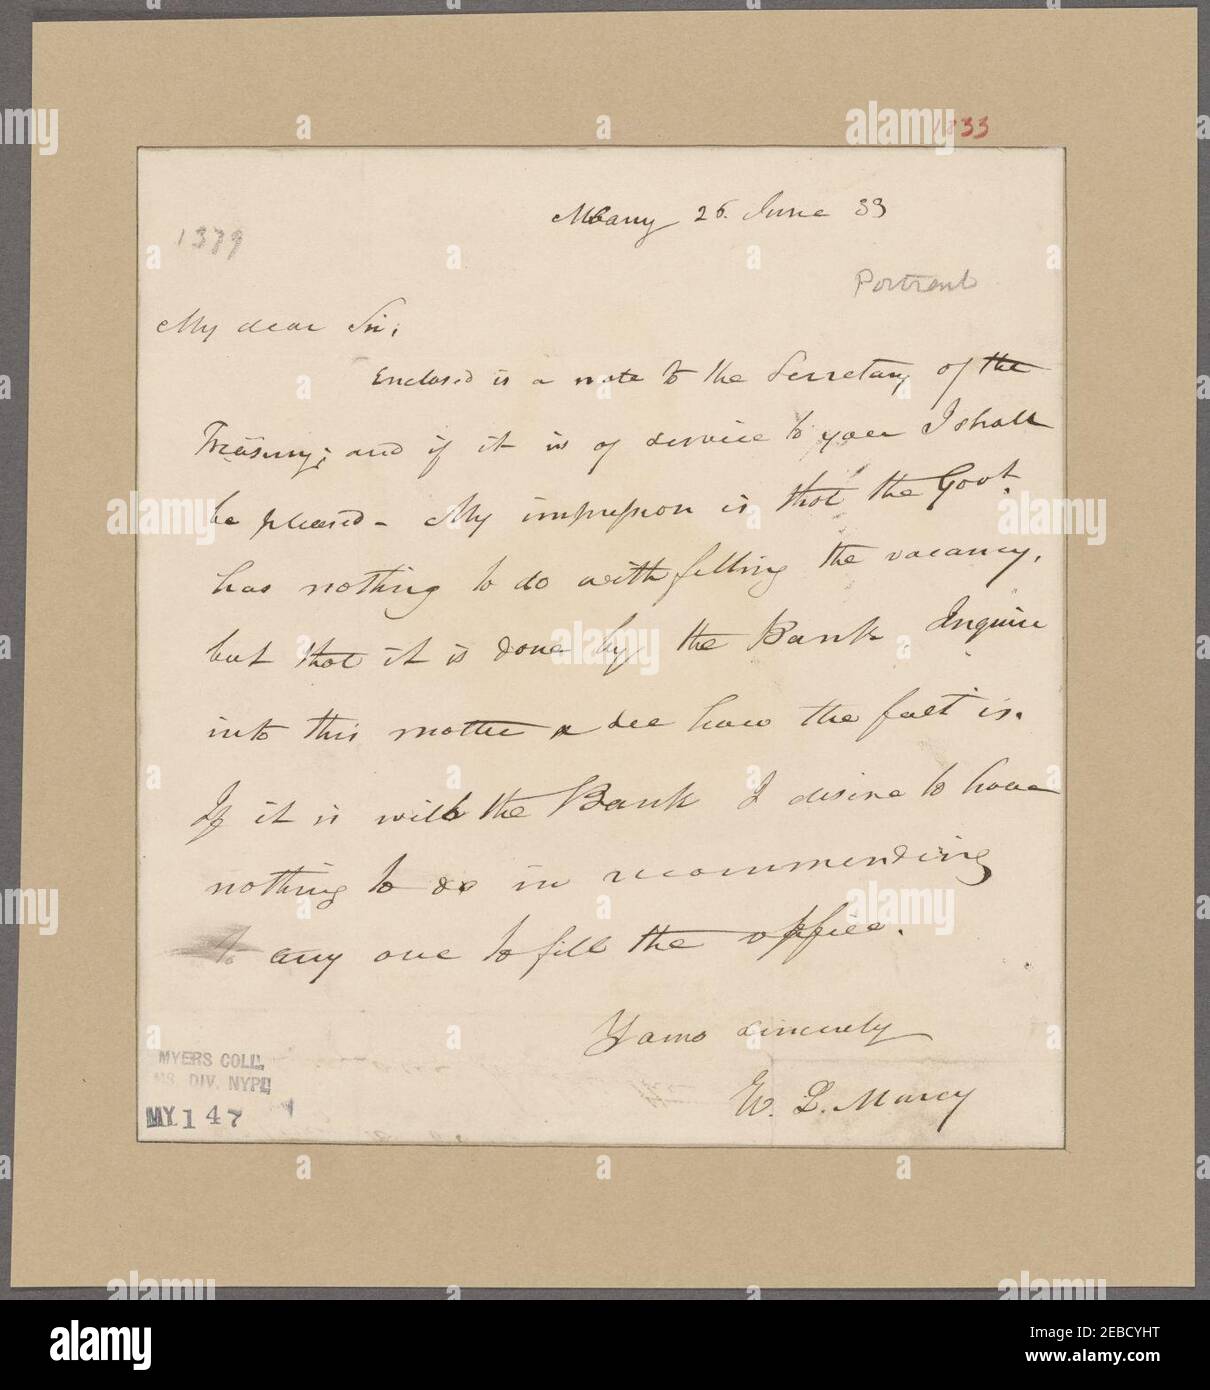 1833
Albany 26. June 33
1379
Portrait
My dear Sir;
Enclosed is a note to the Secretary of the
Treasury; and if it is of service to you I shall
be pleased - My impression is that the Govt.
has nothing to do with filling the vacancy,
but that it is done by the Bank. Inquire
into this matter & see how the fact is.
If it is with the Bank I desire to have
nothing to do in recommending
to any one to fill the office.
Yours sincerely
W. L. Marcy
MYERS COLL.
MS. DIV. NYPL
MY 147
alamy
Image ID: 2EBCYHT
www.alamy.com